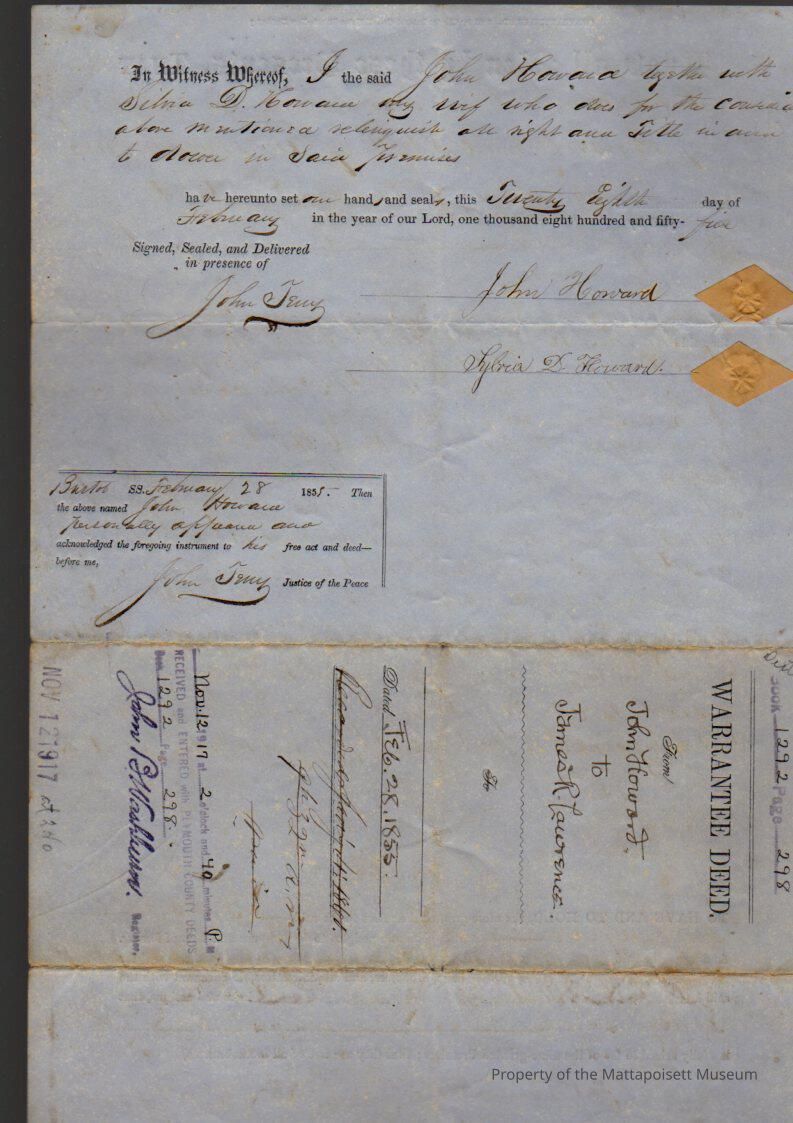 In Witness Whereof, I the said John Howard together with
Silvia D. Howard my wif who does for the
above mentioned relinquish all right and Title in and
to dower in Said Premises
have hereunto set our hands and seals, this Twenty Eighth day of
February in the year of our Lord, one thousand eight hundred and fifty-five
Signed, Sealed, and Delivered
in presence of
John Howard
John Terry
Sylvia D. Howard.
Bristol SS. February 28 1855. Then
the above named John Howard
personally and
acknowledged the foregoing instrument to his free act and deed—
before me,
John Terry Justice of the Peace
Book 1292 Page 298
WARRANTEE DEED.
From
John Howard,
to
James R. Lawrence.
To
Dated Feb. 28, 1855.
Nov. 12, 1917 at 2 o'clock and 40 minutes P. M
RECEIVED and ENTERED with PLYMOUTH COUNTY DEEDS
Book 1292 Page 298.
John B. Washburn. Register.
NOV 12 1917 at 2 40
Property of the Mattapoisett Museum